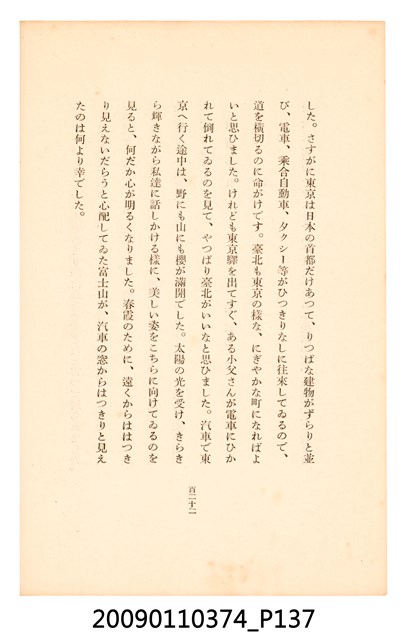 した。さすがに東京は日本の首都だけあつて、りつぱな建物がずらりと並
び、電車、乘合自動車、タクシー等がひつきりなしに往來してゐるので、
道を横切るのに命がけです。臺北も東京の樣な、にぎやかな町になればよ
いと思ひました。けれども東京驛を出てすぐ、ある小父さんが電車にひか
れて倒れてゐるのを見て、やつぱり臺北がいいなと思ひました。汽車で東
京へ行く途中は、野にも山にも櫻が滿開でした。太陽の光を受け、きらき
ら輝きながら私達に話しかける樣に、美しい姿をこちらに向けてゐるのを
見ると、何だか心が明るくなりました。春霞のために、遠くからははつき
り見えないだらうと心配してゐた富士山が、汽車の窓からはつきりと見え
たのは何より幸でした。
百二十二
20090110374_P137